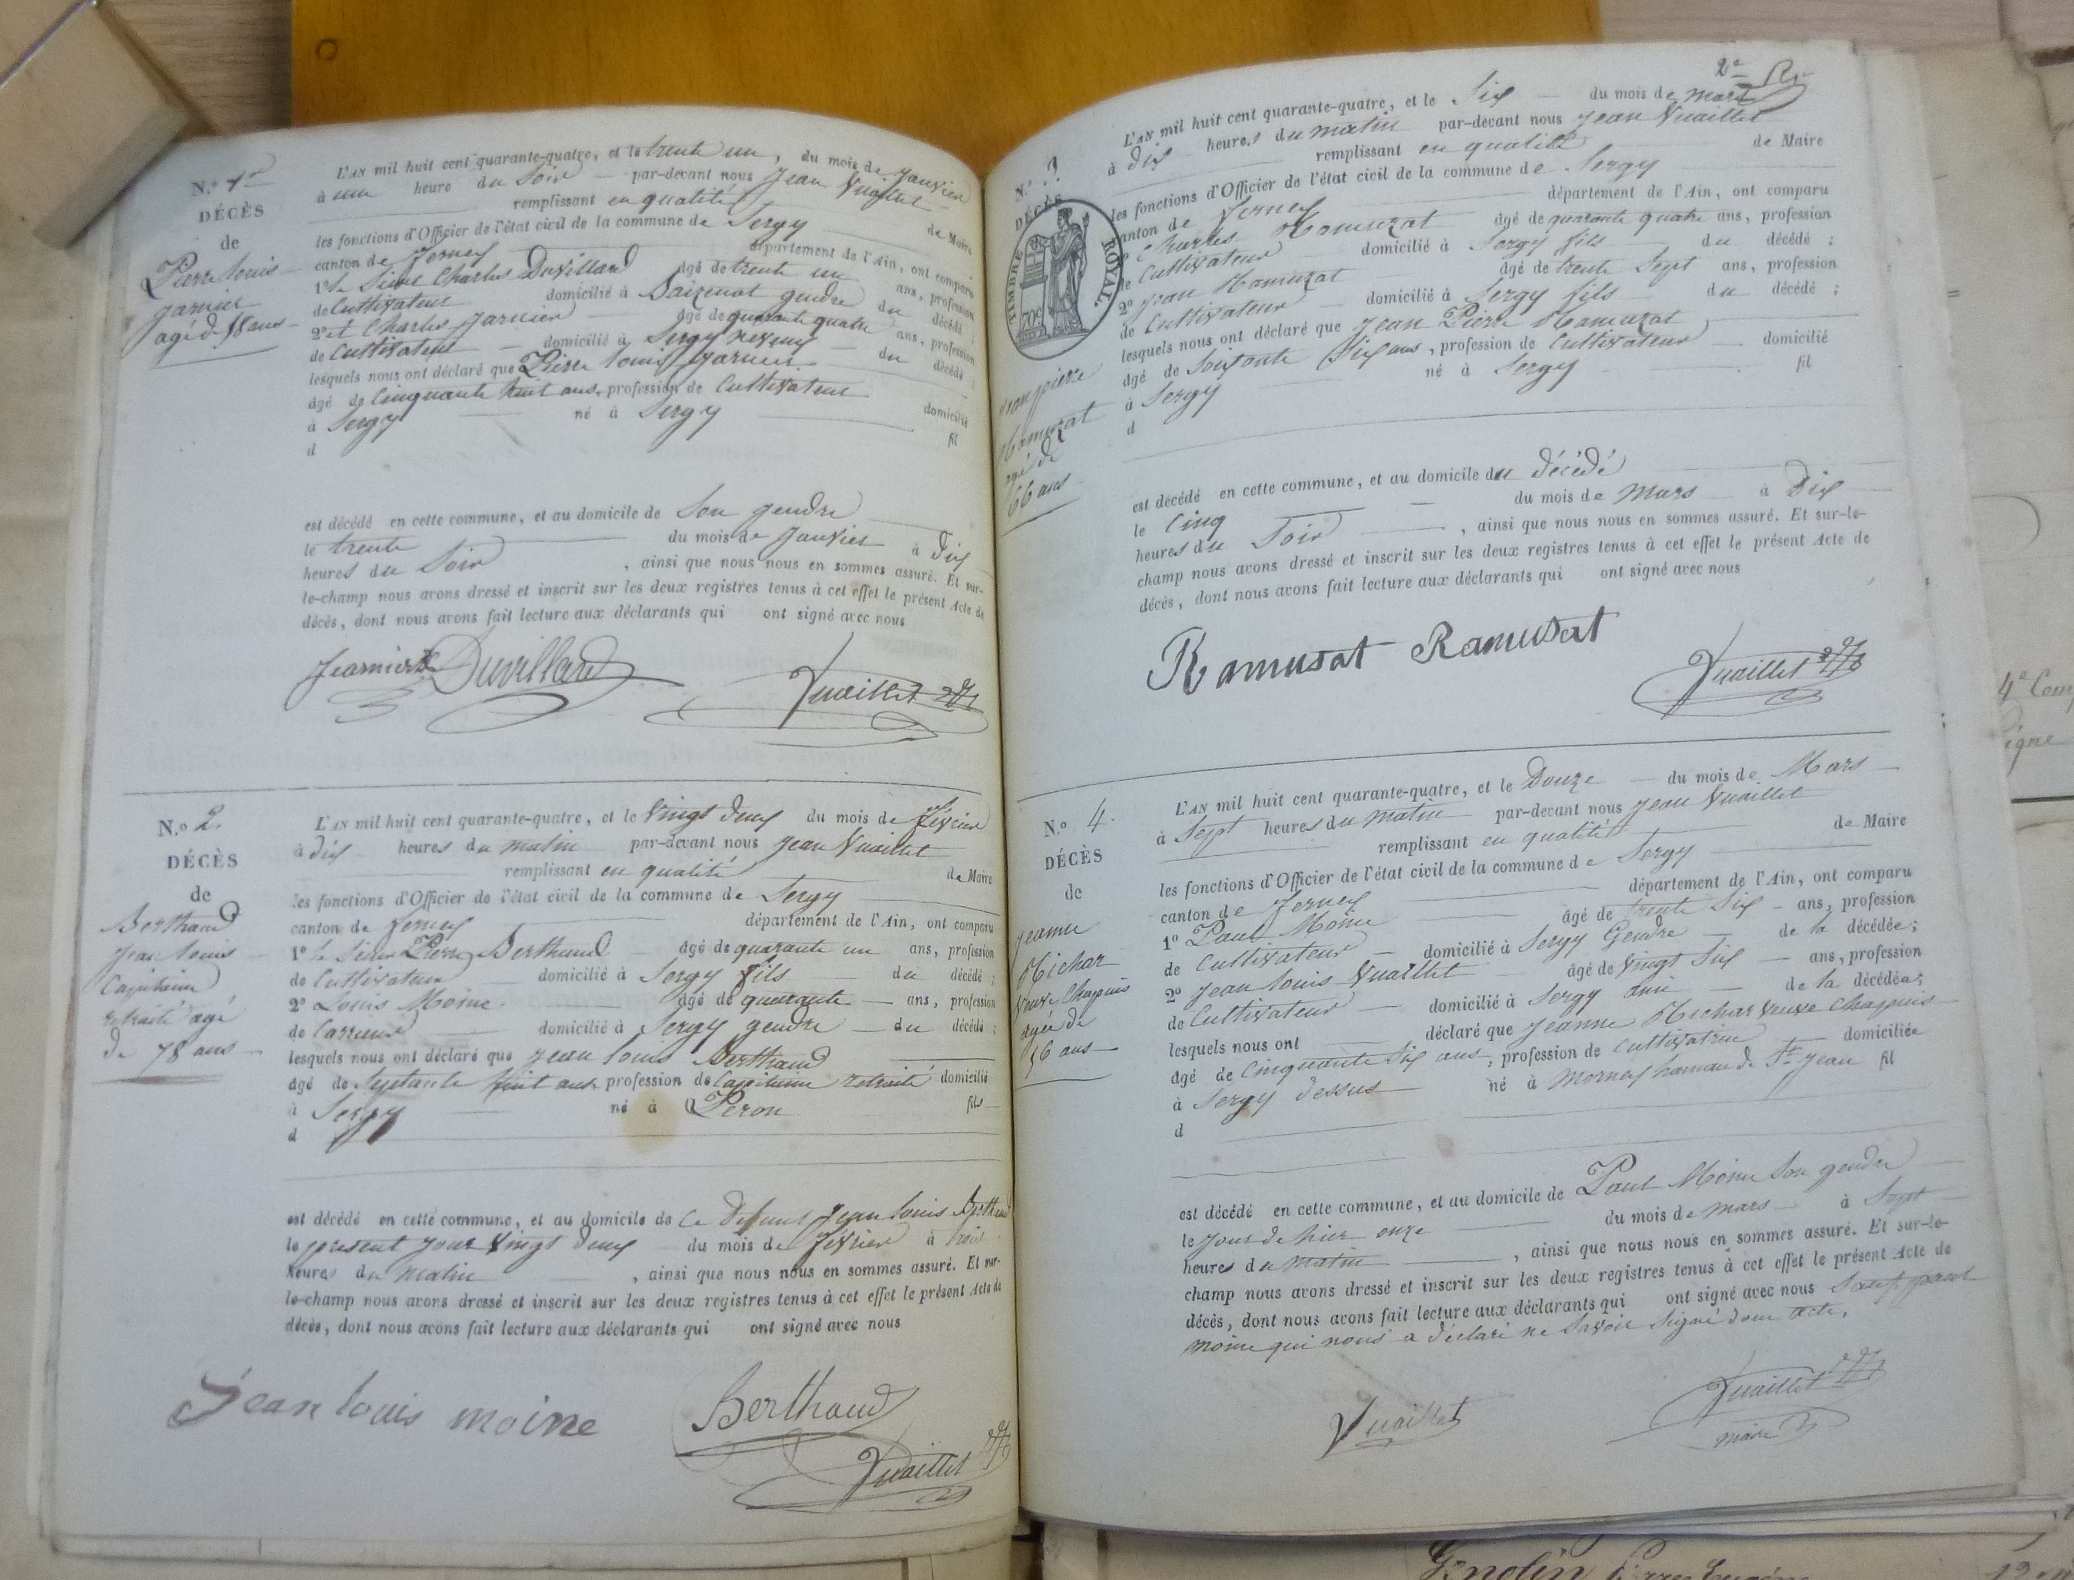 N.º 1er
DÉCÈS
de
Pierre Louis
Jarnier
agé d. 58 ans
L'AN mil huit cent quarante-quatre, et le trente un, du mois de Janvier
à une heure du Soir par-devant nous Jean Vuaillet
remplissant en qualité de Maire
les fonctions d'Officier de l'état civil de la commune de Sergy
canton de Ferney département de l'Ain, ont comparu
1º le Sieur Charles Duvillard âgé de trente un ans, profession
de Cultivateur domicilié à gendre du décédé ;
2º et Charles Jarnier âgé de quarante quatre ans, profession
de Cultivateur domicilié à Sergy neveux du décédé ;
lesquels nous ont déclaré que Pierre Louis Jarnier
âgé de Cinquante huit ans, profession de Cultivateur domicilié
à Sergy né à Sergy fil
d
est décédé en cette commune, et au domicile de Son gendre
le trente du mois de Janvier à Dix
heures du Soir , ainsi que nous nous en sommes assuré. Et sur-
le-champ nous avons dressé et inscrit sur les deux registres tenus à cet effet le présent Acte de
décès, dont nous avons fait lecture aux déclarants qui ont signé avec nous
Jearnier Duvillard
Vuaillet
N.º 2.
DÉCÈS
de
Berthaud
Jean Louis
Capitaine
retraité agé
de 78 ans
L'AN mil huit cent quarante-quatre, et le Vingt deux du mois de Février
à dix heures du matin par-devant nous Jean Vuaillet
remplissant en qualité de Maire
les fonctions d'Officier de l'état civil de la commune de Sergy
canton de Ferney département de l'Ain, ont comparu
1º le Sieur Pierre Berthaud âgé de quarante un ans, profession
de Cultivateur domicilié à Sergy fils du décédé ;
2º Louis Moine âgé de quarante ans, profession
de domicilié à Sergy gendre du décédé ;
lesquels nous ont déclaré que Jean Louis Berthaud
âgé de Septante huit ans, profession de Capitaine retraité domicilié
à Sergy né à Péron fils
d
est décédé en cette commune, et au domicile de Ce Défunt Jean Louis Berthaud
le présent jour Vingt deux du mois de Février à trois
heures du matin , ainsi que nous nous en sommes assuré. Et sur-
le-champ nous avons dressé et inscrit sur les deux registres tenus à cet effet le présent Acte de
décès, dont nous avons fait lecture aux déclarants qui ont signé avec nous
Jean Louis moine Berthaud
Vuaillet
2e
N.º 3
DÉCÈS
TIMBRE ROYAL.
70c
Jean pierre
Ramuzat
agé de
66 ans
L'AN mil huit cent quarante-quatre, et le Six du mois de mars
à dix heures du matin par-devant nous Jean Vuaillet
remplissant en qualité de Maire
les fonctions d'Officier de l'état civil de la commune de Sergy
canton de Ferney département de l'Ain, ont comparu
Charles Ramuzat âgé de quarante quatre ans, profession
de Cultivateur domicilié à Sergy fils du décédé ;
2º Jean Ramuzat âgé de trente Sept ans, profession
de Cultivateur domicilié à Sergy fils du décédé ;
lesquels nous ont déclaré que Jean Pierre Ramuzat
âgé de Soixante Six ans, profession de Cultivateur domicilié
à Sergy né à Sergy fil
d
est décédé en cette commune, et au domicile du décédé
le Cinq du mois de mars à Dix
heures du Soir , ainsi que nous nous en sommes assuré. Et sur-le-
champ nous avons dressé et inscrit sur les deux registres tenus à cet effet le présent Acte de
décès, dont nous avons fait lecture aux déclarants qui ont signé avec nous
Ramusat Ramusat
Vuaillet
N.º 4.
DÉCÈS
de
Jeanne
Michar
Veuve Chapuis
agée de
56 ans
L'AN mil huit cent quarante-quatre, et le Douze du mois de Mars
à Sept heures du matin par-devant nous Jean Vuaillet
remplissant en qualité de Maire
les fonctions d'Officier de l'état civil de la commune de Sergy
canton de Ferney département de l'Ain, ont comparu
1º Paul Moine âgé de trente Six ans, profession
de Cultivateur domicilié à Sergy Gendre de la décédée ;
2º Jean Louis Vuaillet âgé de Vingt Six ans, profession
de Cultivateur domicilié à Sergy ami de la décédée ;
lesquels nous ont déclaré que Jeanne Michar Veuve Chapuis
âgé de Cinquante Six ans, profession de Cultivatrice domiciliée
à Sergy dessus né à Mornex hameau de St Jean fil
d
est décédé en cette commune, et au domicile de Paul Moine Son gendre
le jour de hier onze du mois de mars à Sept
heures du matin , ainsi que nous nous en sommes assuré. Et sur-le-
champ nous avons dressé et inscrit sur les deux registres tenus à cet effet le présent Acte de
décès, dont nous avons fait lecture aux déclarants qui ont signé avec nous Sauf paul
moine qui nous a déclaré ne Savoir Signé dont acte.
Vuaillet Vuaillet
maire
4e Com
ligne